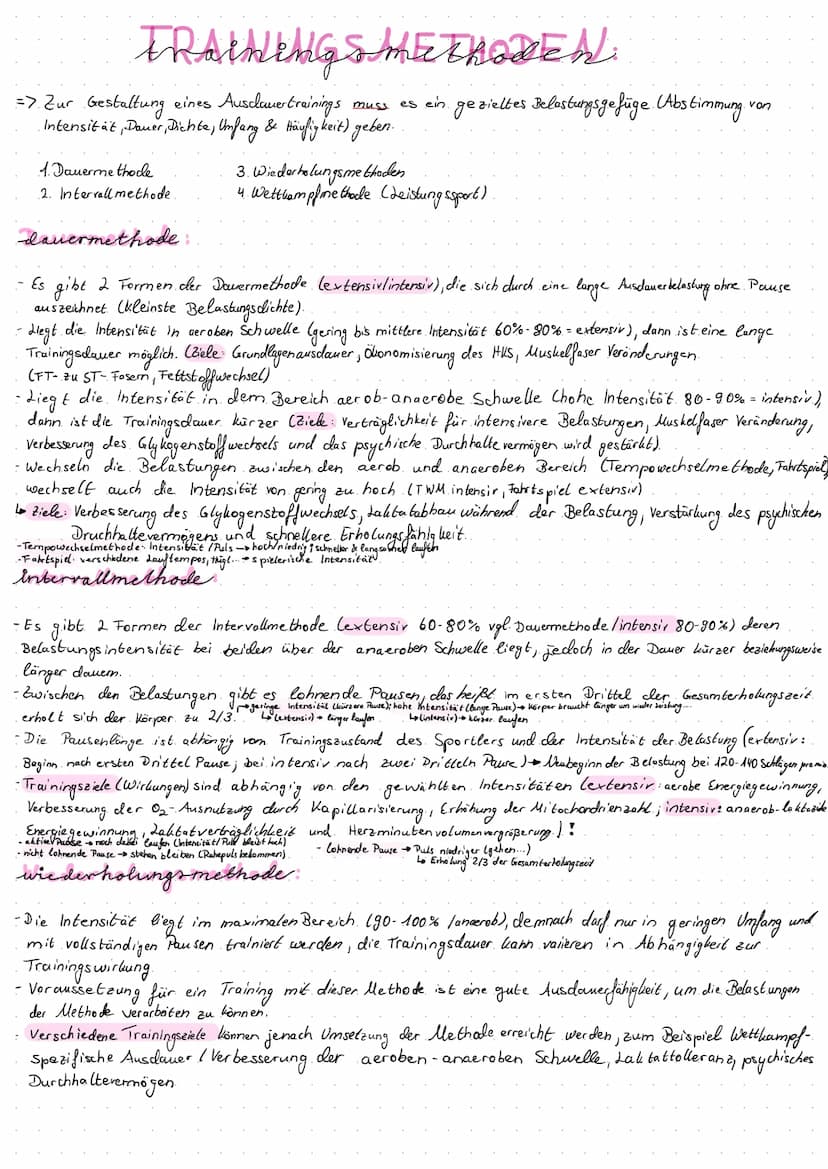 TRAININGSMETHODEN:
trainingsmethoden
=> Zur Gestaltung eines Ausdauertrainings muss es ein gezieltes Belastungsgefüge (Abstimmung von
Intensität, Dauer, Dichte, Umfang & Häufigkeit) geben.
1. Dauermethode 3. Wiederholungsmethoden
2. Intervallmethode 4. Wettkampfmethode (Leistungssport)
dauermethode:
- Es gibt 2 Formen der Dauermethode (extensiv/intensiv), die sich durch eine lange Ausdauerbelastung ohne Pause
auszeichnet (kleinste Belastungsdichte).
- Liegt die Intensität in aeroben Schwelle (gering bis mittlere Intensität 60%-80% = extensiv), dann ist eine lange
Trainingsdauer möglich. (Ziele: Grundlagenausdauer, Ökonomisierung des HKS, Muskelfaser Veränderungen
(FT- zu ST- Fasern, Fettstoffwechsel)
- Liegt die Intensität in dem Bereich aerob-anaerobe Schwelle (hohe Intensität 80-90% = intensiv),
dann ist die Trainingsdauer kürzer (Ziele: Verträglichkeit für intensivere Belastungen, Muskelfaser Veränderung,
Verbesserung des Glykogenstoffwechsels und das psychische Durchhaltevermögen wird gestärkt).
- Wechseln die Belastungen zwischen den aerob und anaeroben Bereich (Tempowechselmethode, Fahrtspiel)
wechselt auch die Intensität von gering zu hoch (TWM intensiv, Fahrtspiel extensiv)
↳ Ziele: Verbesserung des Glykogenstoffwechsels, Laktatabbau während der Belastung, Verstärkung des psychischen
Druchhaltevermögens und schnellere Erholungsfähigkeit.
- Tempowechselmethode: Intensität / Puls → hoch/niedrig; schneller & langsamer laufen
- Fahrtspiel: verschiedene Lauftempos, Hügl... → spielerische Intensität
intervallmethode:
- Es gibt 2 Formen der Intervallmethode (extensiv 60-80% vgl. Dauermethode / intensiv 80-90%) deren
Belastungsintensität bei beiden über der anaeroben Schwelle liegt, jedoch in der Dauer kürzer beziehungsweise
länger dauern.
- Zwischen den Belastungen gibt es lohnende Pausen, das heißt im ersten Drittel der Gesamterholungszeit
↱ geringe Intensität (kürzere Pause); hohe Intensität (lange Pause) → Körper braucht länger um wieder Leistung...
erholt sich der Körper zu 2/3. ↳ (extensiv) → länger laufen ↳ (intensiv) → kürzer laufen
- Die Pausenlänge ist abhängig vom Trainingszustand des Sportlers und der Intensität der Belastung (extensiv:
Beginn nach ersten Drittel Pause; bei intensiv nach zwei Dritteln Pause) → Neubeginn der Belastung bei 120-140 Schlägen pro min.
- Trainingsziele (Wirkungen) sind abhängig von den gewählten Intensitäten (extensiv: aerobe Energiegewinnung,
Verbesserung der O₂-Ausnutzung durch Kapillarisierung, Erhöhung der Mitochondrienzahl; intensiv: anaerob-laktazide
Energiegewinnung, Laktatverträglichkeit und Herzminutenvolumenvergrößerung.) !
- aktive Pause → noch dabei laufen (Intensität / Puls bleibt hoch) - lohnende Pause → Puls niedriger (gehen...)
- nicht lohnende Pause → stehen bleiben (Ruhepuls bekommen) ↳ Erholung 2/3 der Gesamterholungszeit
wiederholungsmethode:
- Die Intensität liegt im maximalen Bereich (90-100% / anaerob), demnach darf nur in geringen Umfang und
mit vollständigen Pausen trainiert werden, die Trainingsdauer kann vaiieren in Abhängigkeit zur
Trainingswirkung.
- Voraussetzung für ein Training mit dieser Methode ist eine gute Ausdauerfähigkeit, um die Belastungen
der Methode verarbeiten zu können.
- Verschiedene Trainingsziele können jenach Umsetzung der Methode erreicht werden, zum Beispiel Wettkampf-
spezifische Ausdauer / Verbesserung der aeroben-anaeroben Schwelle, Laktattolleranz, psychisches
Durchhaltevermögen